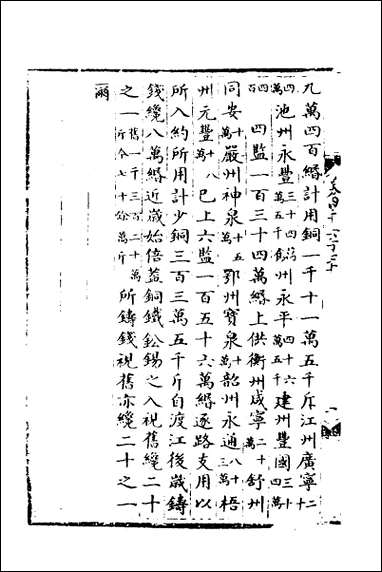 九萬四百緡計用銅一千十一萬五千斤江州廣寧二十
四萬池州永豐三十四萬五千饒州永平四十六萬五千建州豐國三十四萬
四百四監一百三十四萬緡上供衡州咸寧二十萬舒州
同安十萬嚴州神泉十五萬鄂州寶泉十萬韶州永通八十三萬梧
州元豐十八萬已上六監一百五十六萬緡逐路支用以
所入約所用計少銅三百三萬五千斤自渡江後歲鑄
錢纔八萬緡近歲始倍蓋銅鐵鉛錫之入視舊纔二十
之一舊一千三百二十萬斤今七十餘萬斤所鑄錢視舊亦纔二十之一
爾